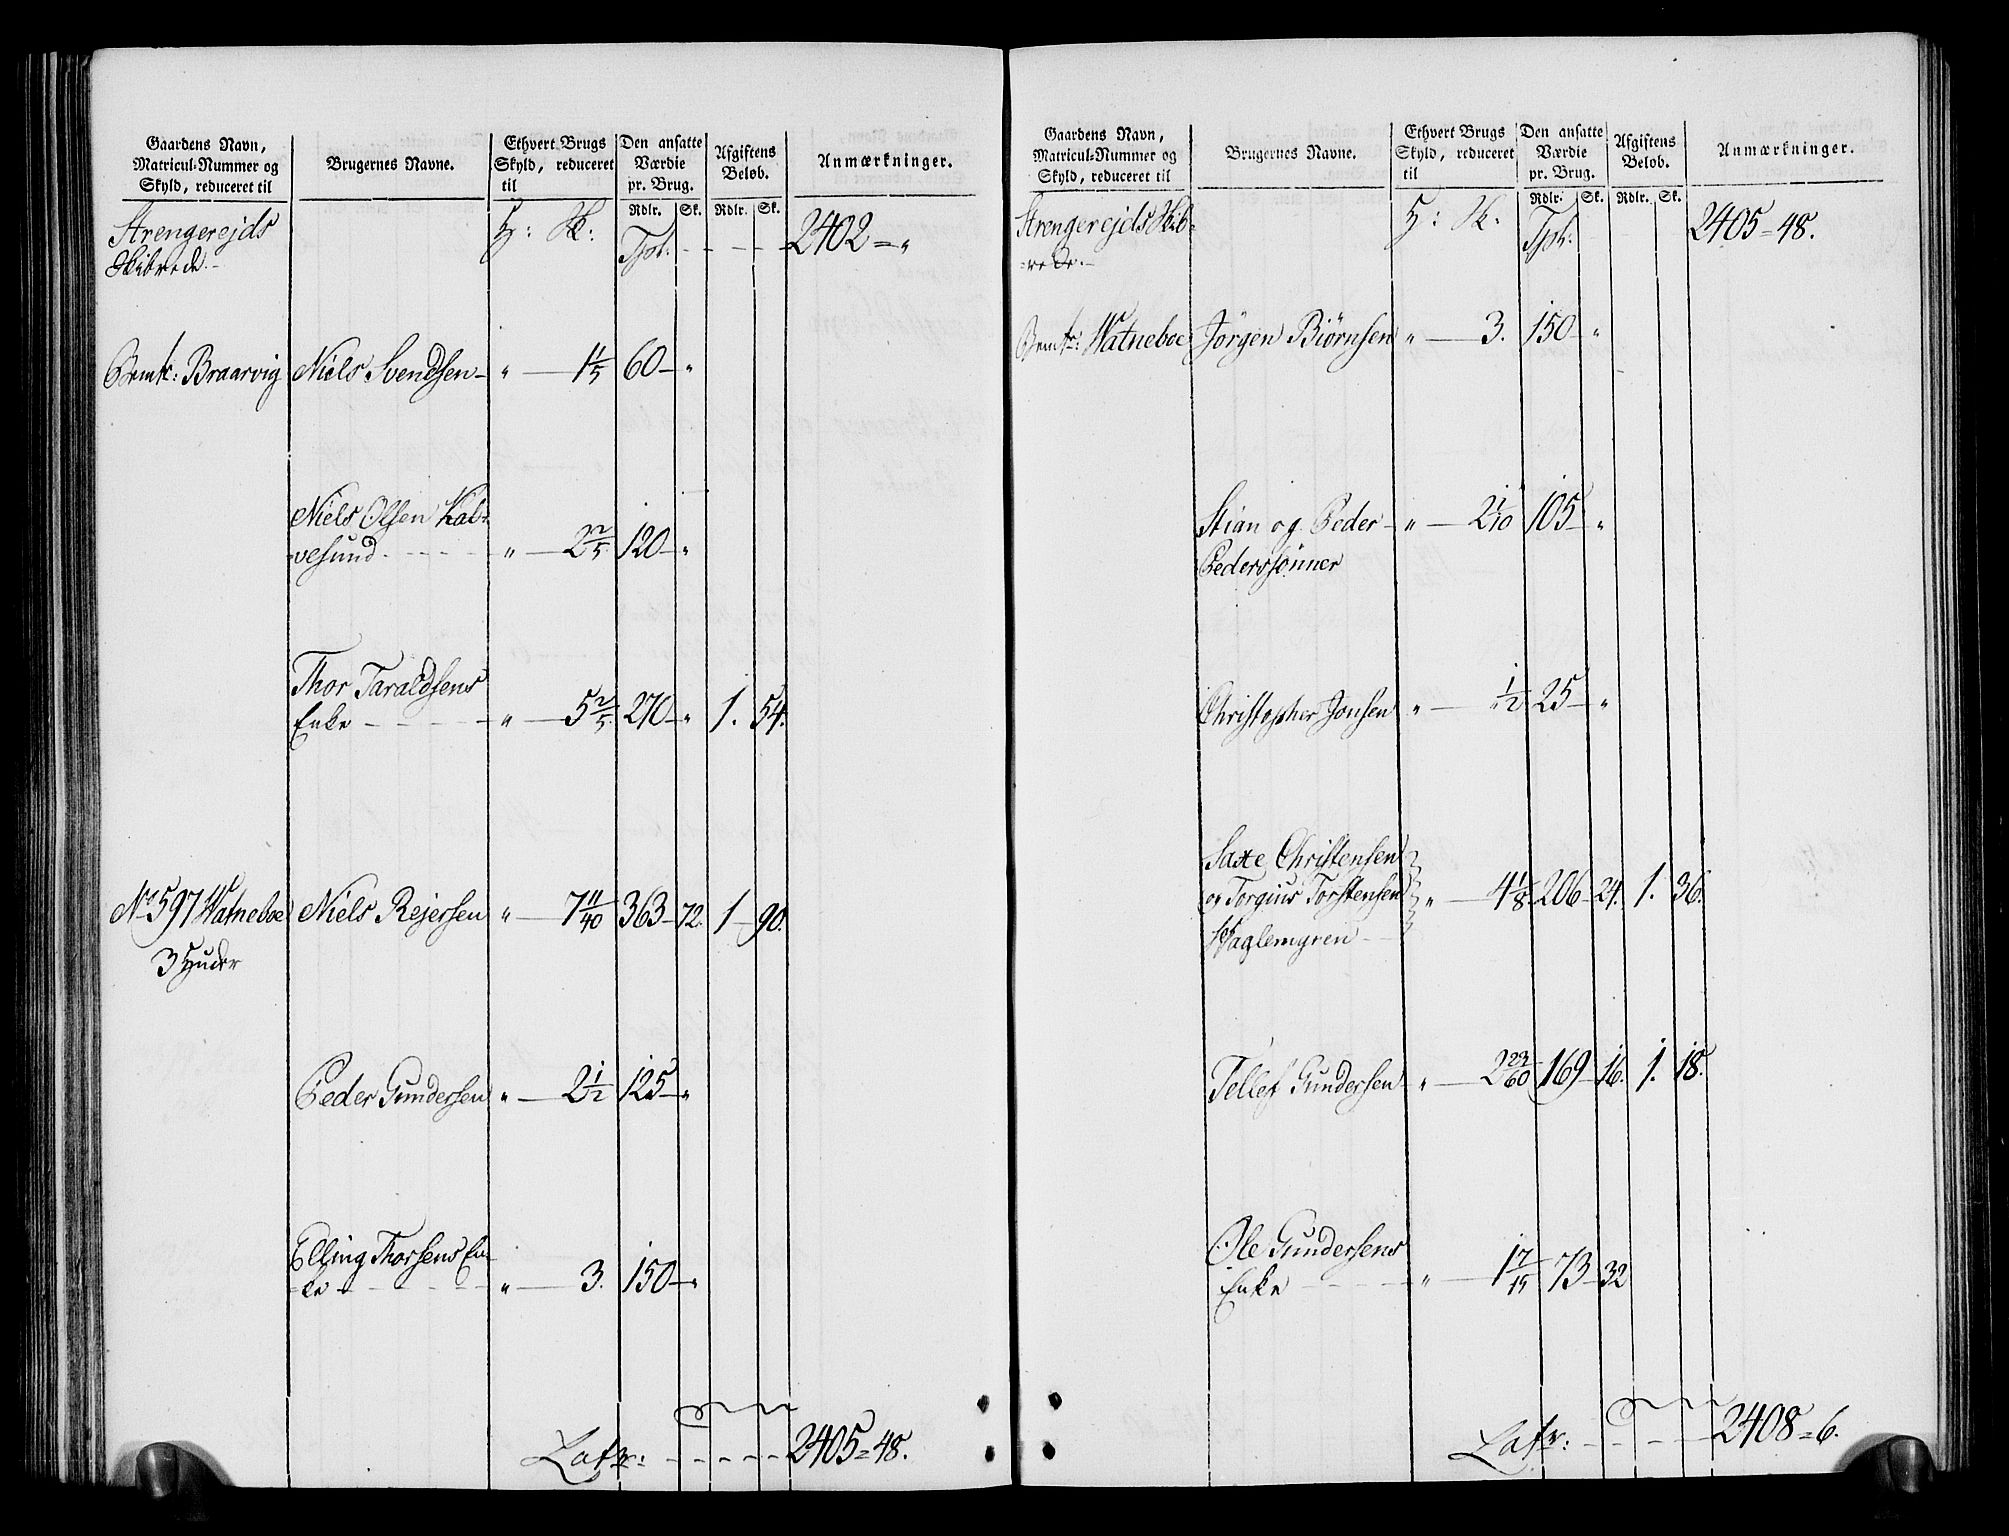 Gaardens Navn,
Matricul-Nummer og
Skyld, reduceret til
Brugernes Navne.
Ethvert Brugs
Skyld, reduceret
til
Den ansatte
Værdie
pr. Brug.
Afgiftens
Beløb.
Anmærkninger.
Rdlr. Sk. Rdlr. Sk.
Strengerejds
Skibrede.
H: Sk: - - - - 2402 = "
Bemte: Braarvig Niels Svendsen - " - 1 1/5 60 - "
Niels Olsen Kal-
vesund - - - - " - 2 2/5 120 - "
Thor Taraldsens
Enke - - - - " - 5 2/5 270 - " 1. 54.
No 597 Watneboe Niels Rejersen " - 7 11/40 363 - 72. 1 - 90.
3 Huder
Peder Gundersen " - 2 1/2 125 - "
Elling Thorsens En-
ke - - - - - " - 3. 150 - "
Latr: - - - - - 2405 = 48.
Gaardens Navn,
Matricul-Nummer og
Skyld, reduceret til
Brugernes Navne.
Ethvert Brugs
Skyld, reduceret
til
Den ansatte
Værdie
pr. Brug.
Afgiftens
Beløb.
Anmærkninger.
Rdlr. Sk. Rdlr. Sk.
Strengerejds Skib-
rede.
H: Sk: 2405 = 48.
Bemte: Watneboe Jörgen Biörnsen " - 3. 150 - "
Stian og Peder - " - 2 1/10 105 - "
Pederssönner
Christopher Jonsen " - 1/2 25 - "
Saxe Christensen
og Torgius Torstensen " - 4 1/8 206 - 24. 1. 36.
Waglemyren - -
Tellef Gundersen " - 2 23/60 169 - 16. 1. 18.
Ole Gundersens
Enke - - - - " - 1 7/15 73 - 32
Latr: - - - - 2408 = 6.